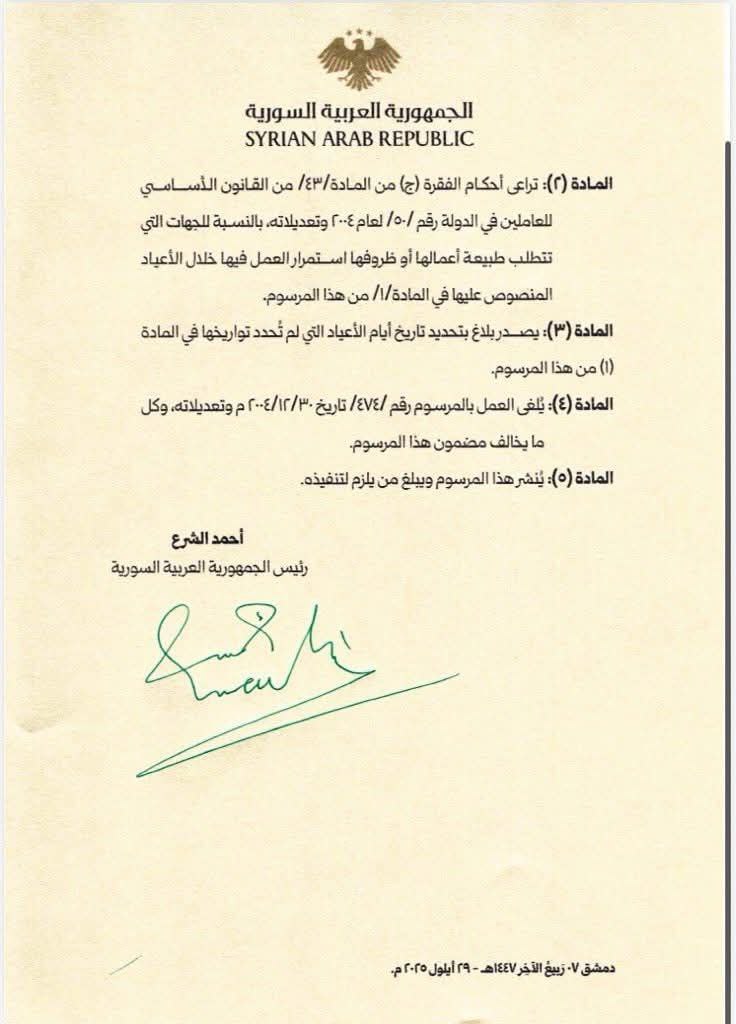 الجمهورية العربية السورية
SYRIAN ARAB REPUBLIC
المادة (٢): تراعى أحكام الفقرة (ج) من المادة/٤٣/ من القانون الأساسي
للعاملين في الدولة رقم /٥٠/ لعام ٢٠٠٤ وتعديلاته، بالنسبة للجهات التي
تتطلب طبيعة أعمالها أو ظروفها استمرار العمل فيها خلال الأعياد
المنصوص عليها في المادة/١/ من هذا المرسوم.
المادة (٣): يصدر بلاغ بتحديد تاريخ أيام الأعياد التي لم تُحدد تواريخها في المادة
(١) من هذا المرسوم.
المادة (٤): يُلغى العمل بالمرسوم رقم /٤٧٤/ تاريخ ٢٠٠٤/١٢/٣٠ م وتعديلاته، وكل
ما يخالف مضمون هذا المرسوم.
المادة (٥): يُنشر هذا المرسوم ويبلغ من يلزم لتنفيذه.
أحمد الشرع
رئيس الجمهورية العربية السورية
دمشق ٠٧ رَبيعُ الآخِر ١٤٤٧هـ - ٢٩ أيلول ٢٠٢٥ م.